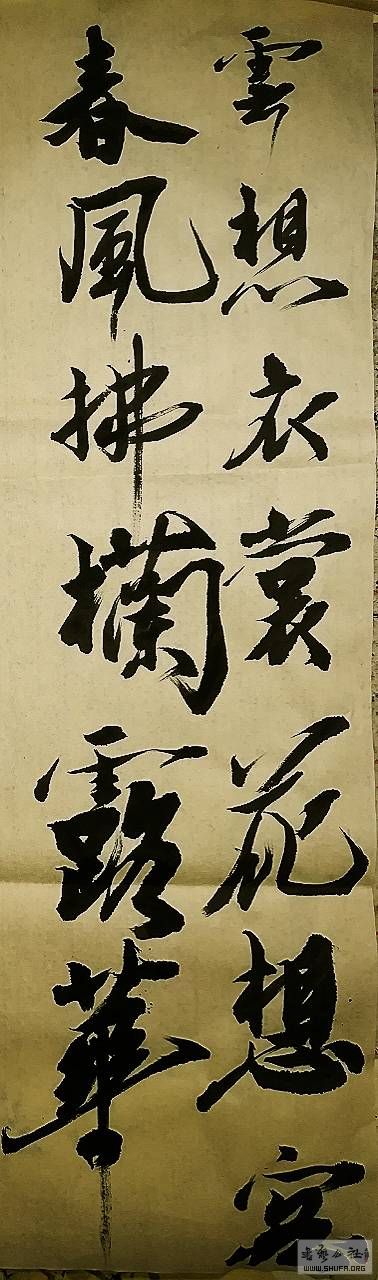 雲想衣裳花想容
春風拂欄露華
WWW.SHUFA.ORG